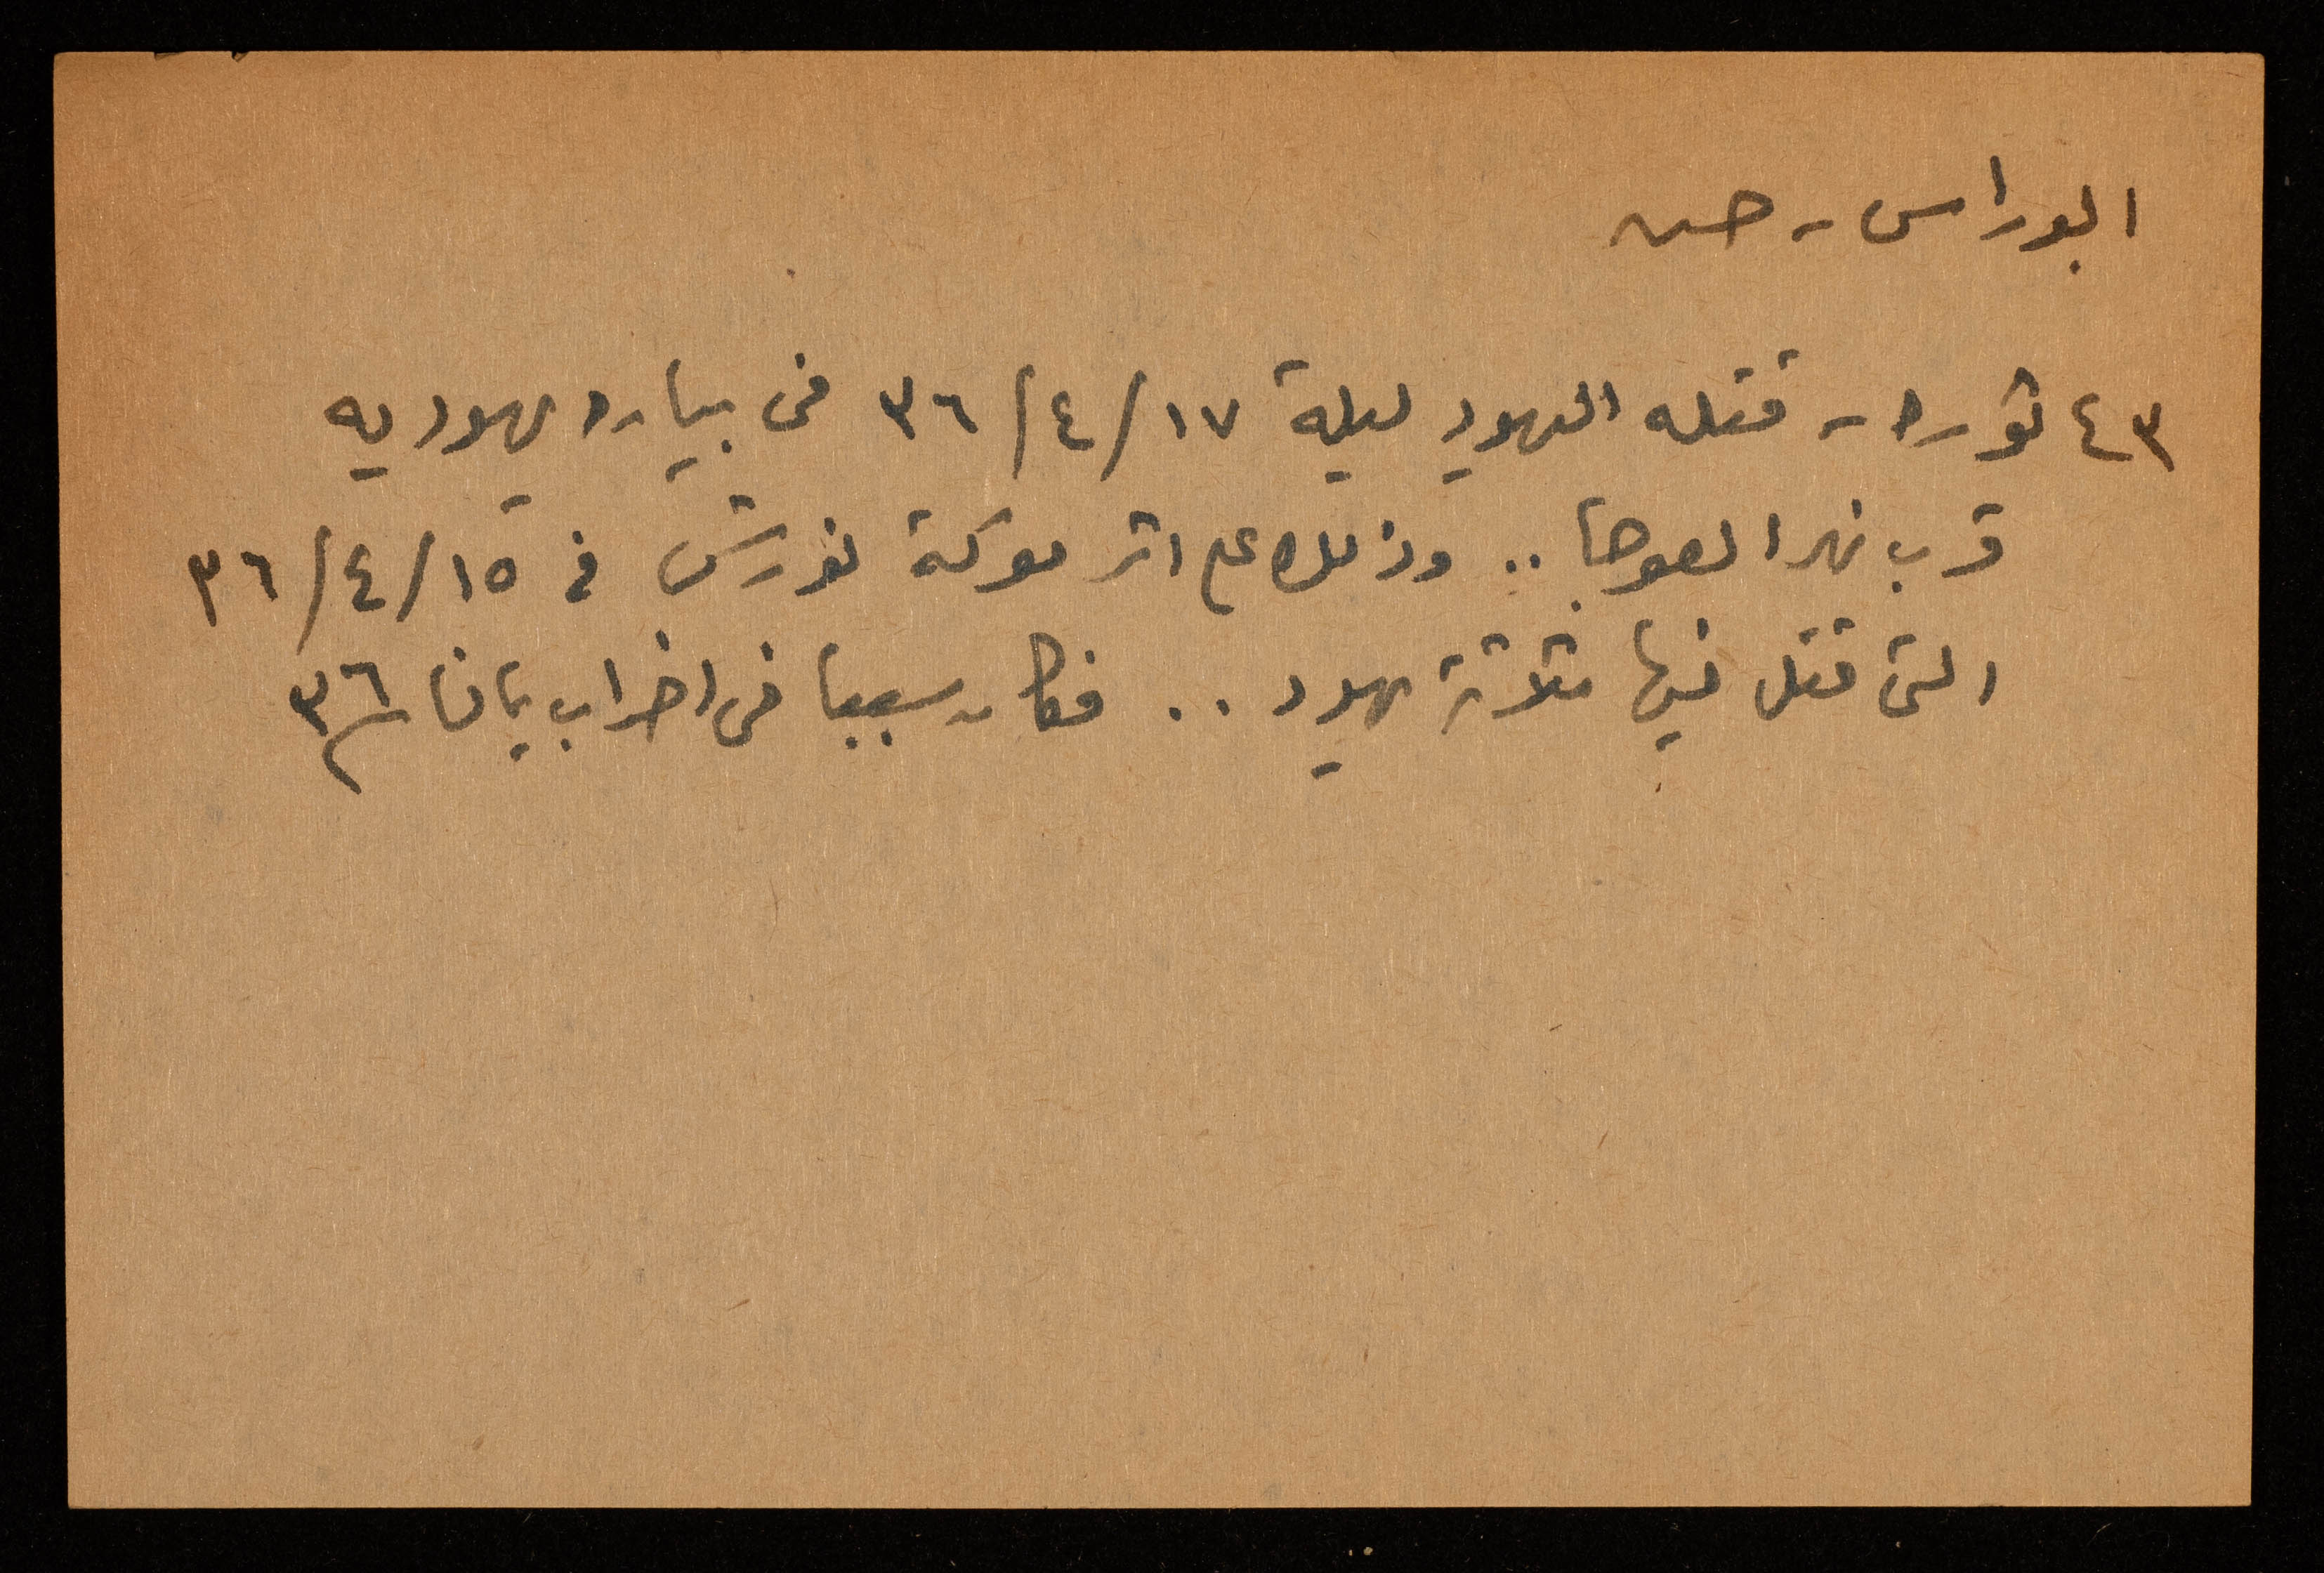 ابو راس - حسن
٤٣ ثوره - قتله اليهود ليلة ١٧/٤/٣٦ في بياره يهوديه
قرب نهر العوجا .. وذلك على اثر معركة نورشس في ١٥/٤/٣٦
التى قتل فيها ثلاثة يهود .. فكان سببا في اضراب يافا ٣٦